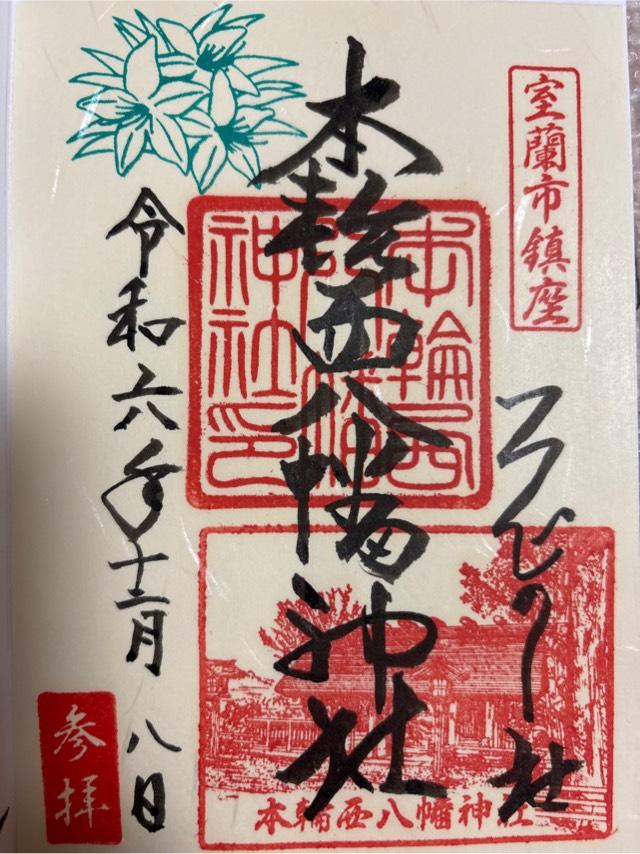 室蘭市鎮座
本輪西八幡神社
本輪西
八幡
神社印
本輪西八幡神社
令和六年十二月八日
参拝